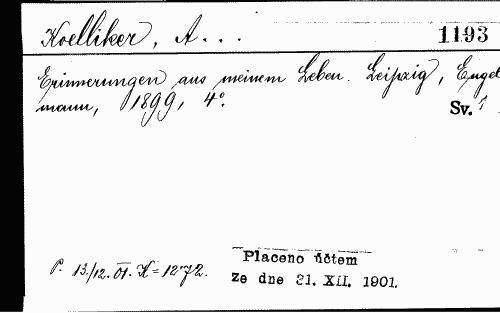 Koelliker, A...
1193
Erinnerungen aus meinem Leben. Leipzig, Engel
mann, 1899, 4°.
Sv. 1
P. 13./12. 01. K = 12·72.
Placeno účtem
ze dne 31. XII. 1901.